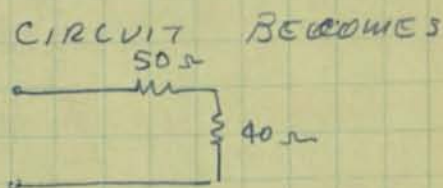 CIRCUIT BECOMES
50 Ω
40 Ω